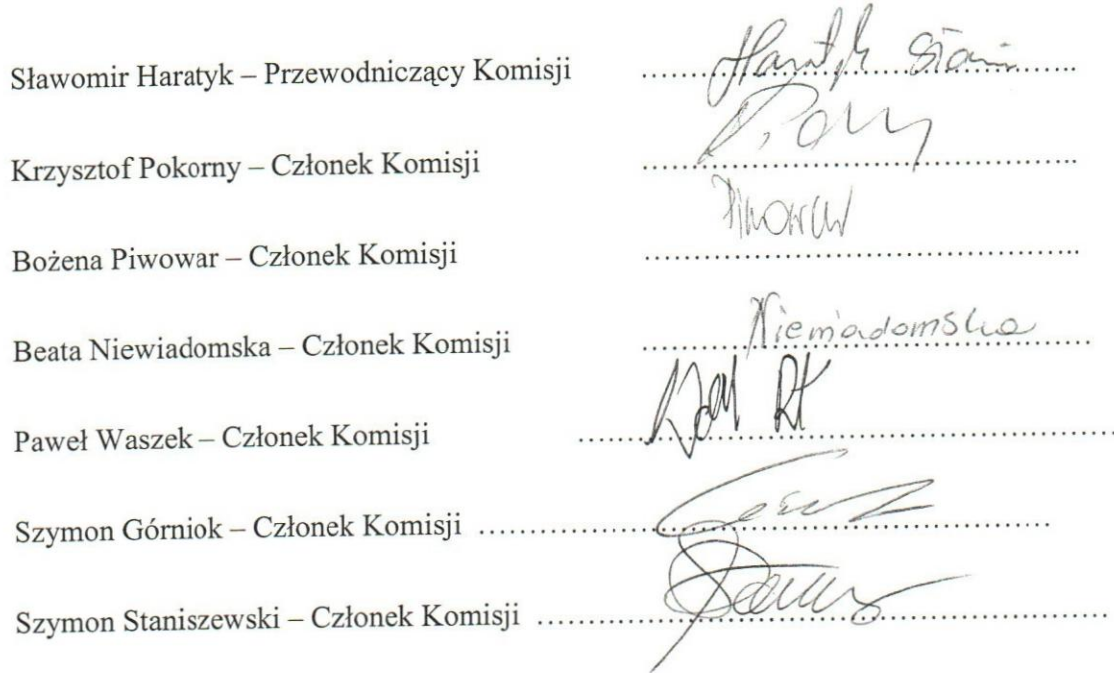 Sławomir Haratyk – Przewodniczący Komisji .......................................... Haratyk Sławomir
Krzysztof Pokorny – Członek Komisji ..........................................
Bożena Piwowar – Członek Komisji .......................................... Piwowar
Beata Niewiadomska – Członek Komisji .......................................... Niewiadomska
Paweł Waszek – Członek Komisji ..........................................
Szymon Górniok – Członek Komisji ..........................................
Szymon Staniszewski – Członek Komisji ..........................................